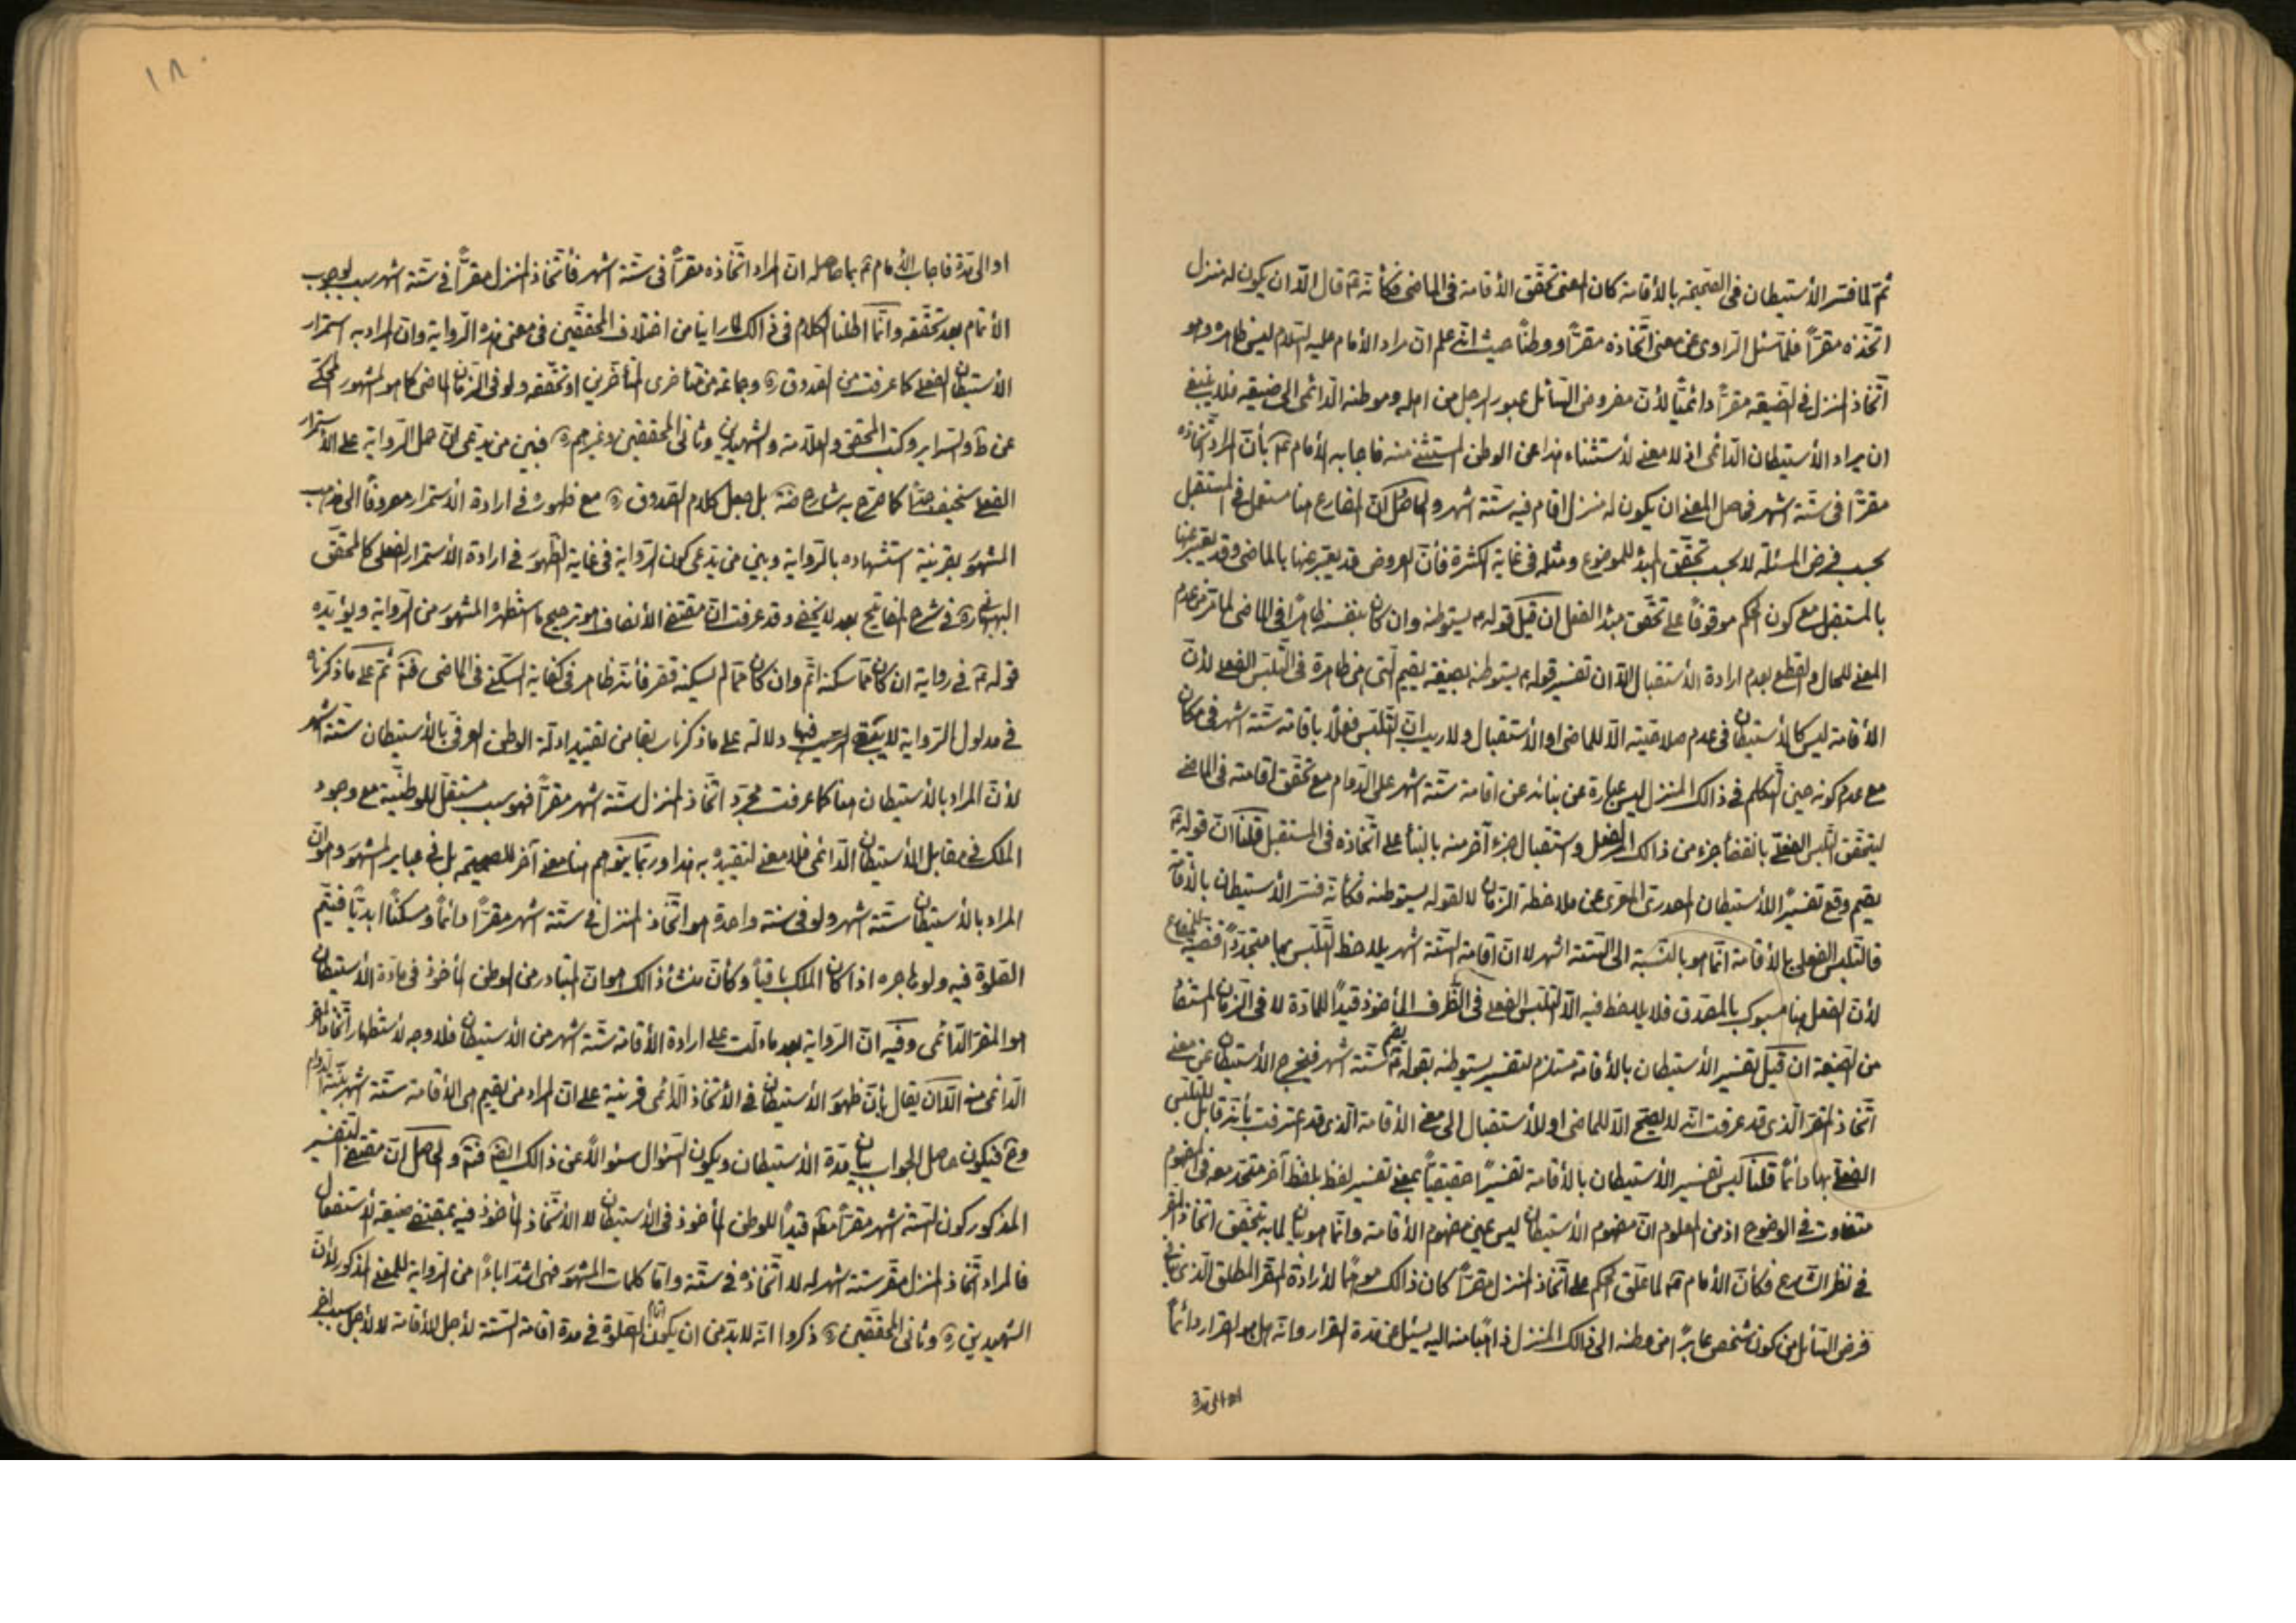 ثمّ لما فسّر الأستيطان فى الصّحيحة بالأقامة كان المعنى تحقّق الأقامة فى الماضى فكأنّه ع قال الّا ان يكون له منزل
اتخذه مقرّاً فلمّا سئل الراوى عن معنى اتّخاذه مقرّاً ووطناً حيث انّه علم انّ مراد الأمام عليه السّلام ليس ظاهره وهو
اتّخاذ المنزل فى الضيعة مقرّاً دائميّاً لأنّ مفروض السّائل عبور الرجل من اهله وموطنه الدّائمى الى ضيعته فلا ينبغى
ان يراد الأستيطان الدّائمى اذ لا معنى لأستثناء هذا عن الوطن المستثنى منه فاجابه الأمام ع بأنّ المراد اتّخاذه
مقرّاً فى ستّة اشهر فحصل المعنى ان يكون له منزل اقام فيه ستّة اشهر والحاصل انّ المضارع هنا مستعمل فى المستقبل
بحسب فرض المسئلة لا بحسب تحقّق المبدء للموضوع ومثله فى غاية الكثرة فأنّ العروض قد يعبّر عنها بالماضى وقد يعبّر عنها
بالمستقبل مع كون الحكم موقوفاً على تحقّق مبدء الفعل ان قيل قوله ع يستوطنه وان كان بنفسه ظاهراً فى الماضى لما مرّ من عدم
المعنى للحال والقطع بعدم ارادة الأستقبال الّا ان تفسير قوله ع يستوطنه بصيغة يقيم الّتى هى ظاهرة فى التّلبّس الفعلى لأنّ
الأقامة ليس كالأستيطان فى عدم صلاحيّته الّا للماضى او الأستقبال ولا ريب انّ التّلبّس فعلاً باقامة ستّة اشهر فى مكان
مع عدم كونه حين التّكلم فى ذالك المنزل ليس عبارة عن بنائه عن اقامة ستّة اشهر على الدّوام مع تحقّق اقامته فى الماضى
ليتحقّق التّلبّس الفعلى بانقضاء جزء من ذالك الفعل واستقبال جزء آخر منه بالبناء على اتّخاذه فى المستقبل قلنا انّ قوله ع
يقيم وقع تفسيراً للأستيطان المصدرى المعرّى عن ملاحظة الزمان لا لقوله يستوطنه فكأنّه فسّر الأستيطان بالأقامة
فالتّلبّس الفعلى بالأقامة انّما هو بالنّسبة الى السّتة اشهر لا انّ اقامة السّتة اشهر يلاحظ التّلبّس بها متجدّداً قضيّة للمضارع
لأنّ الفعل هنا مسبوك بالمصدر فلا يلاحظ فيه الّا التّلبّس الفعلى فى الظّرف المأخوذ قيداً للمادّة لا فى الزمان المستفاد
من الصّيغة ان قيل تفسير الأستيطان بالأقامة مستلزم لتفسير يستوطنه بقوله ع يقيم ستّة اشهر فيخرج الأستيطان عن معنى
اتّخاذ المقرّ الّذى قد عرفت انّه لا يصحّ الّا للماضى او للأستقبال الى معنى الأقامة الّذى قد اعترفت بأنّه قابل للتّلبّس
الفعلى بها دائماً قلنا ليس تفسير الأستيطان بالأقامة تفسيراً حقيقيّاً بمعنى تفسير لفظ بلفظ آخر متّحد معه فى المفهوم
متفاوت فى الوضوح اذ من المعلوم انّ مفهوم الأستيطان ليس عين مفهوم الأقامة وانّما هو بيان لما به يتحقّق اتّخاذ المقرّ
فى نظر الشّارع فكأنّ الأمام ع لما علّق الحكم على اتّخاذ المنزل مقرّاً كان ذالك موهماً لأرادة المقرّ المطلق الّذى ينافى
فرض السّائل من كون شخص عابراً من وطنه الى ذالك المنزل ذاهباً منه اليه يسئل عن مدّة القرار وانّه هل هو القرار دائماً
او الى مدّة
١٨٠
او الى مدّة فاجاب الأمام ع بما حاصله انّ المراد اتّخاذه مقرّاً فى ستّة اشهر فأتّخاذ المنزل مقرّاً فى ستّة اشهر سبب لوجوب
الأتمام بعد تحقّقه وانّما اطلنا الكلام فى ذالك لما راينا من اختلاف المحقّقين فى معنى هذه الرّواية وانّ المراد به استمرار
الأستيطان الفعلى كما عرفت من الصّدوق ره وجماعة من متأخرى المتأخّرين او تحقّقه ولو فى الزمان الماضى كما هو المشهور المحكى
عن ط والسّراير وكتب المحقّق والعلّامة والشّهيدين وثانى المحقّقين وغيرهم ره فبين من يدّعى انّ حمل الرّواية على الأستمرار
الفعلى سخيف جدّاً كما صرّح به شارح ضة بل جعل كلام الصّدوق ره مع ظهوره فى ارادة الأستمرار معروفاً الى مذهب
المشهور بقرينة استشهاده بالرّواية وبين من يدّعى كون الرّواية فى غاية الظّهور فى ارادة الأستمرار الفعلى كالمحقّق
البهبهانى ره فى شرح المفاتيح بعد لا يخفى وقد عرفت انّ مقتضى الأنصاف هو ترجيح ما استظهره المشهور من الرّواية ويؤيّده
قوله ع فى رواية ان كان ممّا سكنه اتمّ وان كان ممّا لم يسكنه قصّر فأنّه ظاهر فى كفاية السّكنى فى الماضى فتمّ ثمّ على ما ذكرناه
فى مدلول الرّواية لا يبقى الرّيب فيها دلالة على ما ذكرنا سابقا من تقييد ادلّة الوطن العرفى بالأستيطان ستّة اشهر
لأنّ المراد بالأستيطان هنا كما عرفت مجرّد اتّخاذ المنزل ستّة اشهر مقرّاً فهو سبب مستقلّ للوطنيّة مع وجود
الملك فى مقابل الأستيطان الدّائمى فلا معنى لتقييده به هذا وربّما يتوهّم هنا معنى آخر للصحيحة بل فى عباير المشهور وهو انّ
المراد بالأستيطان ستّة اشهر ولو فى سنة واحدة هو اتّخاذ المنزل فى ستّة اشهر مقرّاً دائماً ومسكناً ابديّاً فيتمّ
الصّلوة فيه ولو هاجره اذا كان الملك باقياً وكأنّ منشأ ذالك هو انّ المتبادر من الوطن المأخوذ فى مادّة الأستيطان
هو المقرّ الدّائمى وفيه انّ الرّواية بعد ما دلّت على ارادة الأقامة ستّة اشهر من الأستيطان فلا وجه لأستظهار اتّخاذ المقرّ
الدّائمى منه الّا ان يقال بأنّ ظهور الأستيطان فى الأتّخاذ الدّائمى قرينة على انّ المراد من يقيم هى الأقامة ستّة اشهر بنيّة الدوام
وح فيكون حاصل الجواب بيان مدّة الأستيطان ويكون السّؤال سئوالاً عن ذالك ايضا فتمّ والحاصل انّ مقتضى التفسير
المذكور كون السّتة اشهر مقرّاً قيداً للوطن المأخوذ فى الأستيطان لا الأتّخاذ المأخوذ فيه بمقتضى صيغة الأستفعال
فالمراد اتّخاذ المنزل مقرّ ستة اشهر له لا اتّخاذه فى ستّة وامّا كلمات المشهور فهى اشدّ اباءً من الرّواية للمعنى المذكور لأنّ
الشّهيدين ره وثانى المحقّقين ره ذكروا انّه لا بدّ من ان يكون اتمام الصّلوة فى مدة اقامة السّتة لأجل الأقامة لا لأجل سبب اخر